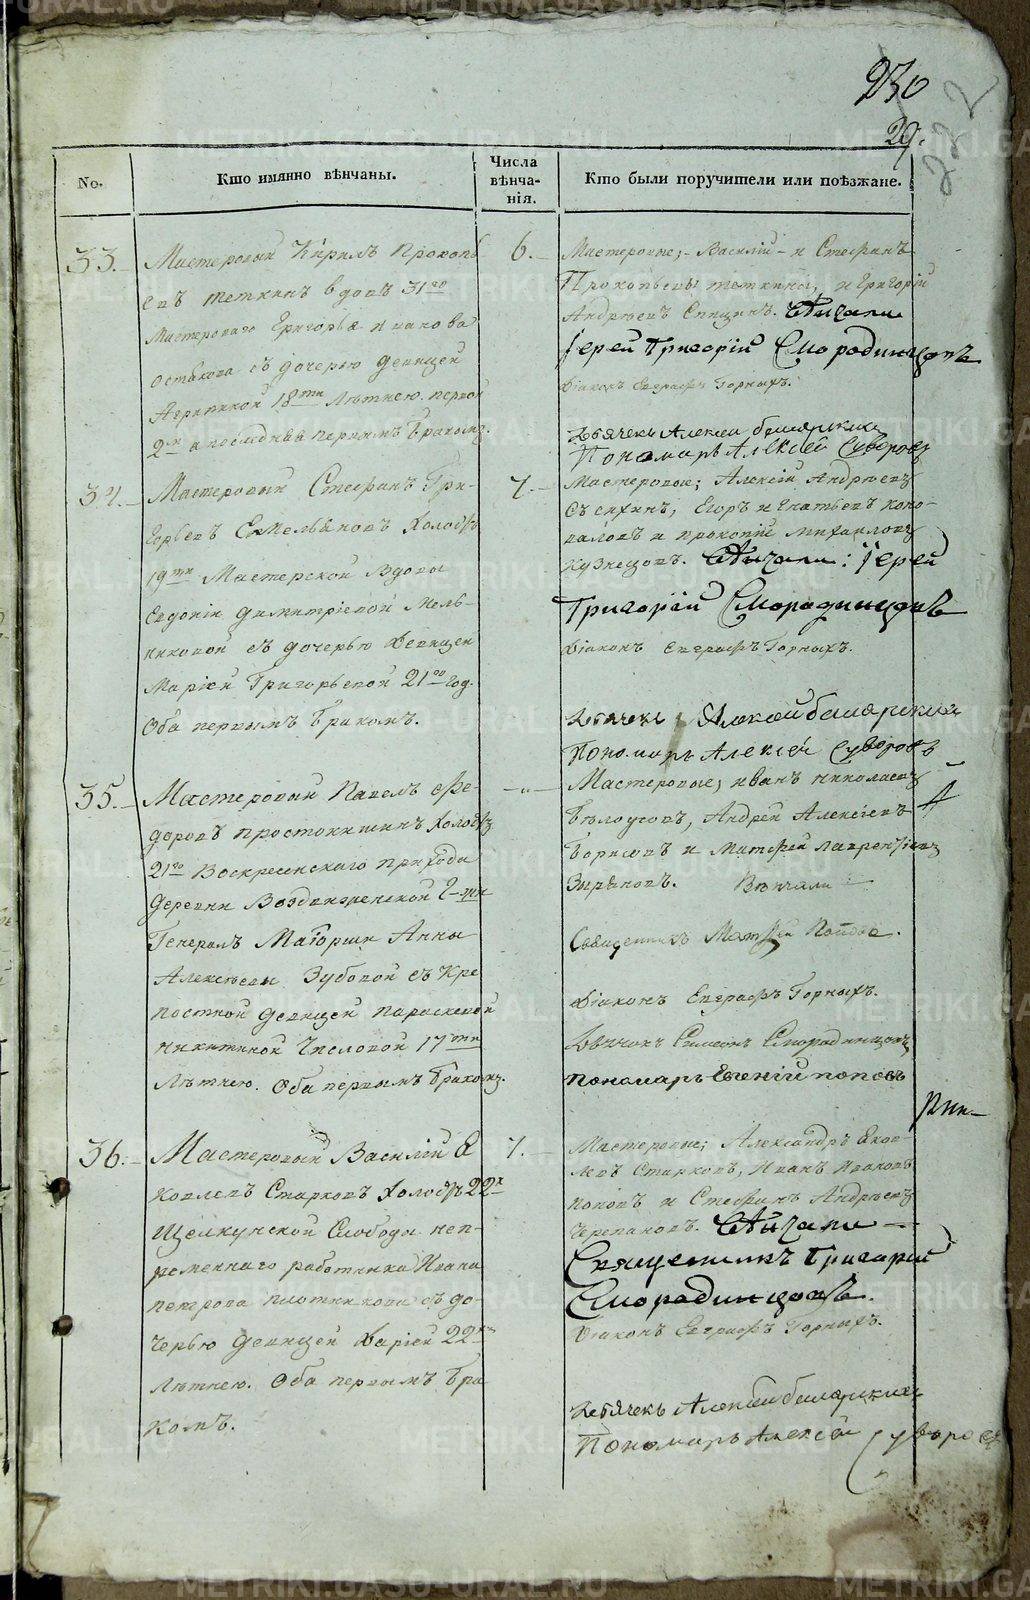 230
29.
222
No.
Кто имянно вѣнчаны.
Числа вѣнча-нія.
Кто были поручители или поѣзжане.
33.
Мастеровый Кирилъ Прокопь
евъ теткинъ вдовъ 31го
Мастероваго Григорья Иванова
Остахова съ дочерью девицей
Агрипиной 18ти Лѣтнею. первой
2м а последнѣя первымъ бракомъ.
6.
Мастеровые; Василій и Стефанъ
Прокопьевы теткины, и Григорій
Андрѣевъ Спицинъ. Вѣнчали
Іерей Григорій Смородинцовъ
Діаконъ Евграфъ Горныхъ.
Дьячекъ Алексей
Пономарь Алексей Суворовъ
34.
Мастеровый Стефанъ Гри-
горьевъ Емельяновъ холостъ
19ти Мастерской Вдовы
Евдокіи Димитріевой Мель-
никовой съ дочерью девицей
Маріей Григорьевой 21го год.
Оба первымъ бракомъ.
7.
Мастеровые; Алексій Андрѣевъ
Егоръ Игнатьевъ коно-
валовъ и прокопій михайловъ
Кузнецовъ. Вѣнчали: Іерей
Григорій Смородинцовъ
Діаконъ Евграфъ Горныхъ.
Дьячекъ Алексей
Пономарь Алексей Суворовъ
35.
Мастеровый Павелъ Фе-
доровъ простокишинъ холостъ
21го Воскресенскаго прихода
деревни Воздвиженской Г-жи
Генералъ Маіорши Анны
Алексѣевы Зубовой съ кре
постной девицей параскевой
никитиной Числовой 17ти
Лѣтнею. Оба первымъ бракомъ.
- „ -
Мастеровые; иванъ николаевъ
Бѣлоусовъ, Андрей Алексіевъ
Борисовъ и Матфей лаврентіевъ
Зыряновъ. Венчали
Священникъ Матфей Поповъ.
Діаконъ Евграфъ Горныхъ.
Дьячокъ Симеонъ Смородинцовъ
пономарь Евгеній поповъ
36.
Мастеровый Василій Я
ковлевъ Старковъ холостъ 22х
Щелкунской Слободы неп-
ременнаго работника Ивана
петрова плотникова съ до-
черью девицей Дарьей 22хъ
Лѣтнею. Оба первымъ бра
комъ.
7.
Мастеровые; Александръ Яков-
левъ Старковъ, Иванъ Ивановъ
поповъ и Стефанъ Андрѣевъ
Черепановъ. Вѣнчали
Священникъ Григорій
Смородинцовъ.
Діаконъ Евграфъ Горныхъ.
Дьячекъ Алексей
Пономарь Алексей Суворовъ
METRIKI.GASO-URAL.RU